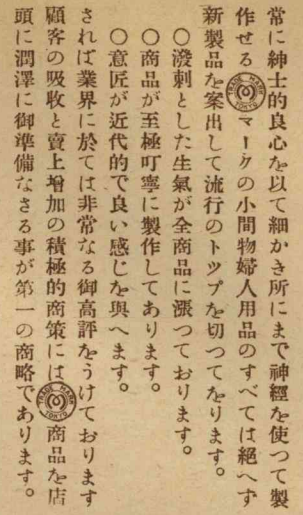 常に紳士的良心を以て細かき所にまで神經を使つて製
作せる TRADE MARK TOKYO マークの小間物婦人用品のすべては絕へず
新製品を案出して流行のトツプを切つてをります。
○潑剌とした生氣が全商品に漲つております。
○商品が至極叮寧に製作してあります。
○意匠が近代的で良い感じを與へます。
されば業界に於ては非常なる御高評をうけております
顧客の吸收と賣上增加の積極的商策には TRADE MARK TOKYO 商品を店
頭に潤澤に御準備なさる事が第一の商略であります。